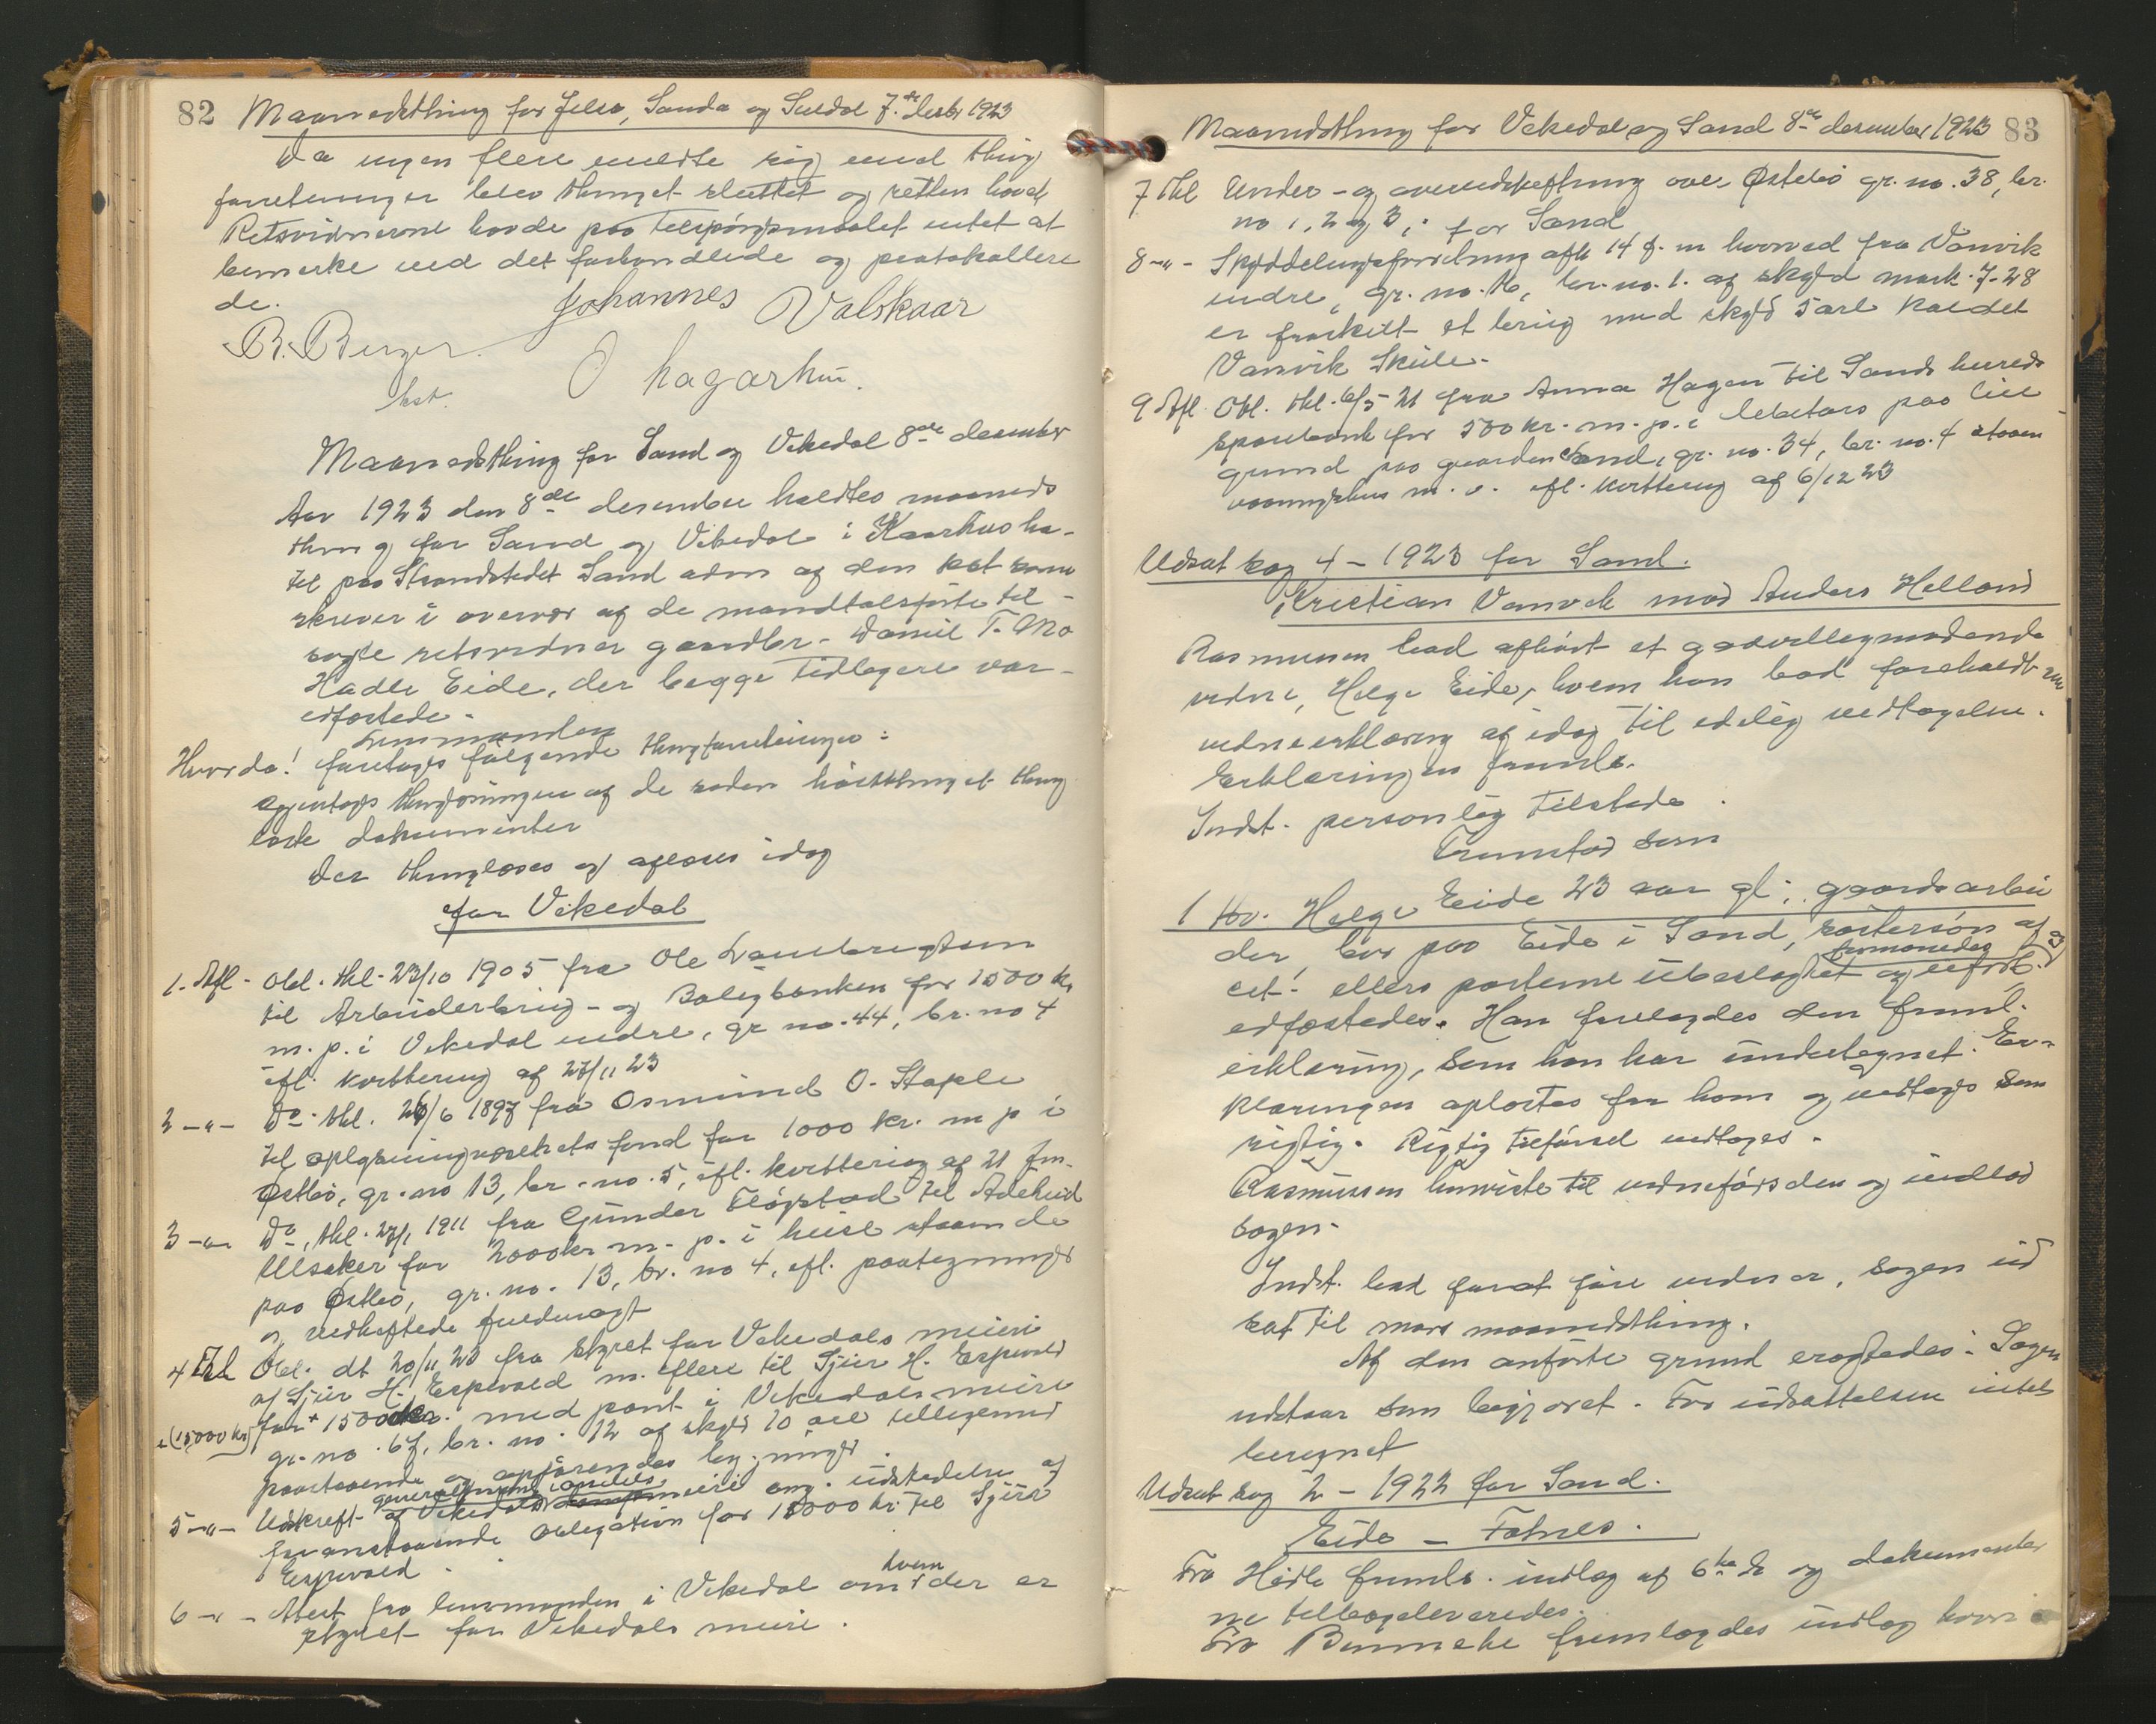 82 Maanedsthing for Jelsa, Sauda og Suldal 7de desbr 1923
Da ingen flere meldte sig med thing
forretninger blev thinget sluttet og retten hævet
Retsvidnerne havde paa tilspørgsmaalet intet at
bemerke ved det forhandlede og protokollere
de.
Johannes Valskaar
B. Berger.
kst.
O hagarhus.
Maanedsthing for Sand og Vikedal 8de desember
Aar 1923 den 8de desember holdtes maaneds
thing for Sand og Vikedal i Kaarhus ho-
tel paa Strandstedet Sand adm af den kst soren
skriver i overvær af de mandtalsførte til-
sagte retsvidner gaardbr. Daniel T. Mo
Hadle Eide, der begge tidligere var
edfæstede.
Lensmanden
Hvorda! foretages følgende thingforretninger:
Gjentages thinglæsningen af de siden høstthinget thing
læste dokumenter
Der thinglæses og aflæses idag
for Vikedal
1. Afl. Obl. thl. 23/10 1905 fra Ole Lambregtsen
til Arbeiderbrug- og Boligbanken for 1500 kr
m. p. i Vikedal indre, gr no. 44, br. no 4
ifl. kvittering af 27/11 23
2 -"- Do. thl. 26/6 1897 fra Osmund O. Stople
til oplysningvæsenets fond for 1000 kr. m p i
Østbø, gr. no 13, br. no. 5, ifl. kvittering af 21 f.m.
3 -"- Do, thl. 27/1 1911 fra Gunder Fløgstad til Adelheid
Ulsaker for 2000 kr m. p. i huse staaende
paa Østbø, gr. no. 13, br. no 4, ifl. paategninger
og vedheftede fuldmagt
4 Thl Obl. dt 20/11 23 fra styret for Vikedals meieri
af Sjur H. Espevold m. flere til Sjur H. Espevold
(15000 kr) for + 15000 kr. med pant i Vikedals meieri
gr. no. 67, br. no. 12 af skyld 10 øre tilligemed
paastaaende og opførendes bygninger.
generalforsaml. i andels
5 -"- Udskrift af Vikedals meieri ang. udstedelse af
foranstaaende obligation for 15000 kr. til Sjur
Espevold.
hvem
6 -"- Attest fra lensmanden i Vikedal om der er
styret for Vikedals meieri.
Maanedsthing for Vikedal og Sand 8de desember 1923 83
7 thl Under- og overudskiftning over Østebø gr. no. 38, br.
no 1, 2 og 3, for Sand
8 -"- Skylddelingsforretning afh 14 f. m hvorved fra Vanvik
indre, gr. no. 16, br. no. 1. af skyld mark 7.28
er fraskilt et brug med skyld 5 øre kaldet
Vanvik Skule.
9 Afl. Obl. thl. 6/5 21 fra Anna Hagen til Sands herreds
sparebank for 500 kr. m. p. i debitors paa leie
grund paa gaarden Sand, gr. no. 34, br. no. 4 staaen
vaaningshus m. v. ifl. kvittering af 6/12 23
Udsat sag 4 - 1923 for Sand.
Kristian Vanvik mod Anders Helland
Rasmussen bad afhørt et godvilligmødende
vidne, Helge Eide, hvem han bad foreholdt en
vidneerklæring af idag til edelig vedtagelse.
Erklæringen fremla.
Indst. personlig tilstede.
Fremstod som
1 Vid. Helge Eide 23 aar gl; gaardsarbei
der, bor paa Eide i Sand, søstersøn af
cit: ellers parterne ubeslægtet og uforb.
formanedes og
edfæstedes. Han forelagdes den freml.
erklæring, som han har undertegnet. Er-
klæringen oplæstes for ham og vedtages som
rigtig. Rigtig tilførsel vedtages.
Rasmussen henviste til vidneførsden og indlod
sagen.
Indst. bad forat føre vidner, sagen ud
sat til mars maanedsthing.
Af den anførte grund eragtedes: Sagen
udstaar som begjæret. For udsættelsen intet
beregnet
Udsat sag 2 - 1922 for Sand.
Eide - Fatnes.
Fra Hidle fremla. indlæg af 6te ds og dokumenter
ne tilbageleveredes.
Fra Bennche fremlagdes indlæg hvori